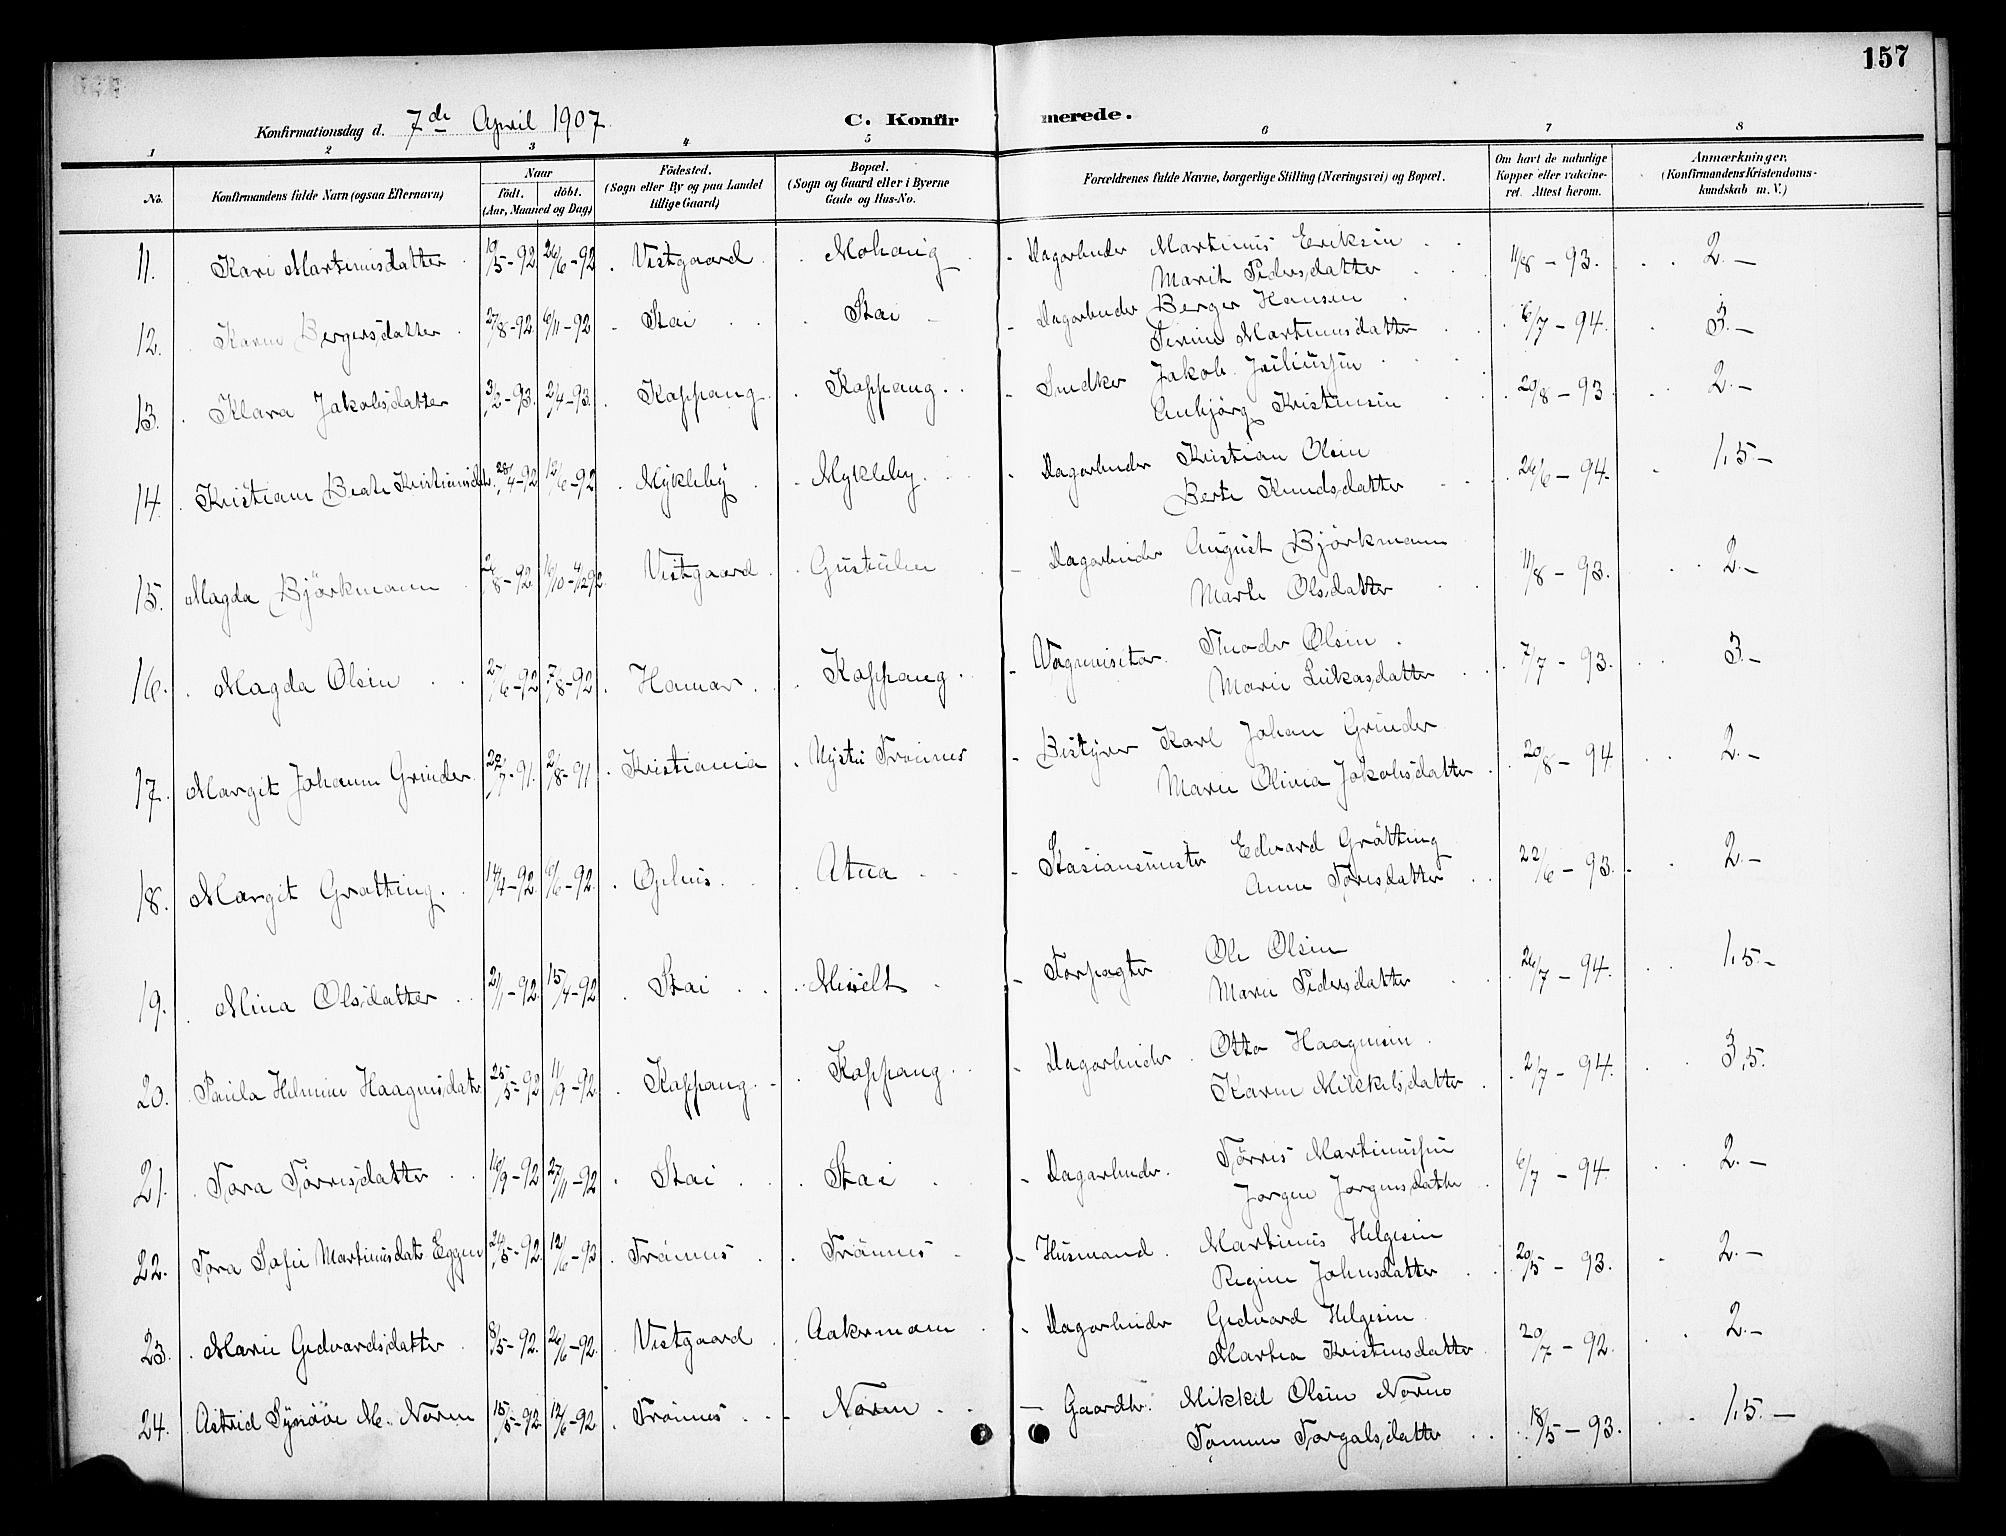 157
Konfirmationsdag d. 7de April 1907.
C. Konfirmerede.
1 2 3 4 5 6 7 8
No. Konfirmandens fulde Navn (ogsaa Efternavn) Naar født. døbt. (Aar, Maaned og Dag) Fødested. (Sogn eller By og paa Landet tillige Gaard) Bopæl. (Sogn og Gaard eller i Byerne Gade og Hus-No. Forældrenes fulde Navne, borgerlige Stilling (Næringsvei) og Bopæl. Om havt de naturlige Kopper eller vaccineret. Attest herom. Anmærkninger, (Konfirmandens Kristendomskundskab m. V.)
11. Kari Martinusdatter 19/5-92 26/6-92 Vestgaard Mohaug Dagarbeider Martinus Eriksen 11/8-93. 2.-
Marit Pedersdatter
12. Karen Bergersdatter 27/8-92 6/11-92 Stai Stai Dagarbeider Berger Hansen 6/7-94. 3.-
Martinusdatter
13. Klara Jakobsdatter 3/2-93. 2/4-93. Koppang Koppang Snedker Jakob Juliussen 29/8-93 2.-
Anbjørg Kristensen
14. Kristiane Beate Kristiansdtr. 28/4-92 12/6-92 Mykleby Mykleby Dagarbeider Kristian Olsen 26/6-94. 1,5-
Berte Knudsdatter
15. Magda Björkmann /8-92. 16/10-92. Vestgaard Gustulen Dagarbeider August Björkmann 11/8-93. 2.-
Marte Olsdatter
16. Magda Olsen 25/6-92 7/8-92 Hamar Koppang Vognvisitør Theodor Olsen 7/7-93. 3-
Marie Lukasdatter
17. Margit Johanne Grinder 22/7-91. 2/8-91 Kristiania Mystu Trønnes Bestyrer Karl Johan Grinder 20/8-94 2.-
Marie Olivia Jakobsdatter
18. Margit Grøtting 14/4-92. 6/6-92. Ophus Atna Stasionsmester Edvard Grøtting 22/6-93. 2.-
Anne Tørresdatter
19. Mina Olsdatter 21/1-92. 15/4-92 Stai Messelt Forpagter Ole Olsen 26/7-94. 1,5-
Marie Pedersdatter
20. Paula Helmine Haagensdatr. 25/5-92 11/9-92. Koppang Koppang Dagarbeider Otto Haagensen 2/7-94. 3,5.
Karen Mikkelsdatter
21. Tora Tørresdatter 16/9-92 27/11-92 Stai Stai Dagarbeider. Tørres Martinussen 6/7-94. 2.-
Jørgine Jørgensdatter
22. Tora Sofie Martinusdatr Eggen /5-92. 12/6-93 Trønnes Trønnes Husmand Martinus Helgesen 20/5-93. 2.-
Regine Johnsdatter
23. Marie Gedvardsdatter 8/5-92. 26/6-92. Vestgaard Aakrmoen Dagarbeider Gedvard Helgesen 20/7-92. 2.-
Martea Kristensdatter
24. Astrid Synøve M. Noren 15/5-92. 12/6-92. Trønnes Noren Gaardbr. Mikkel Olsen Noren 18/5-93. 1,5.-
Torgalsdatter